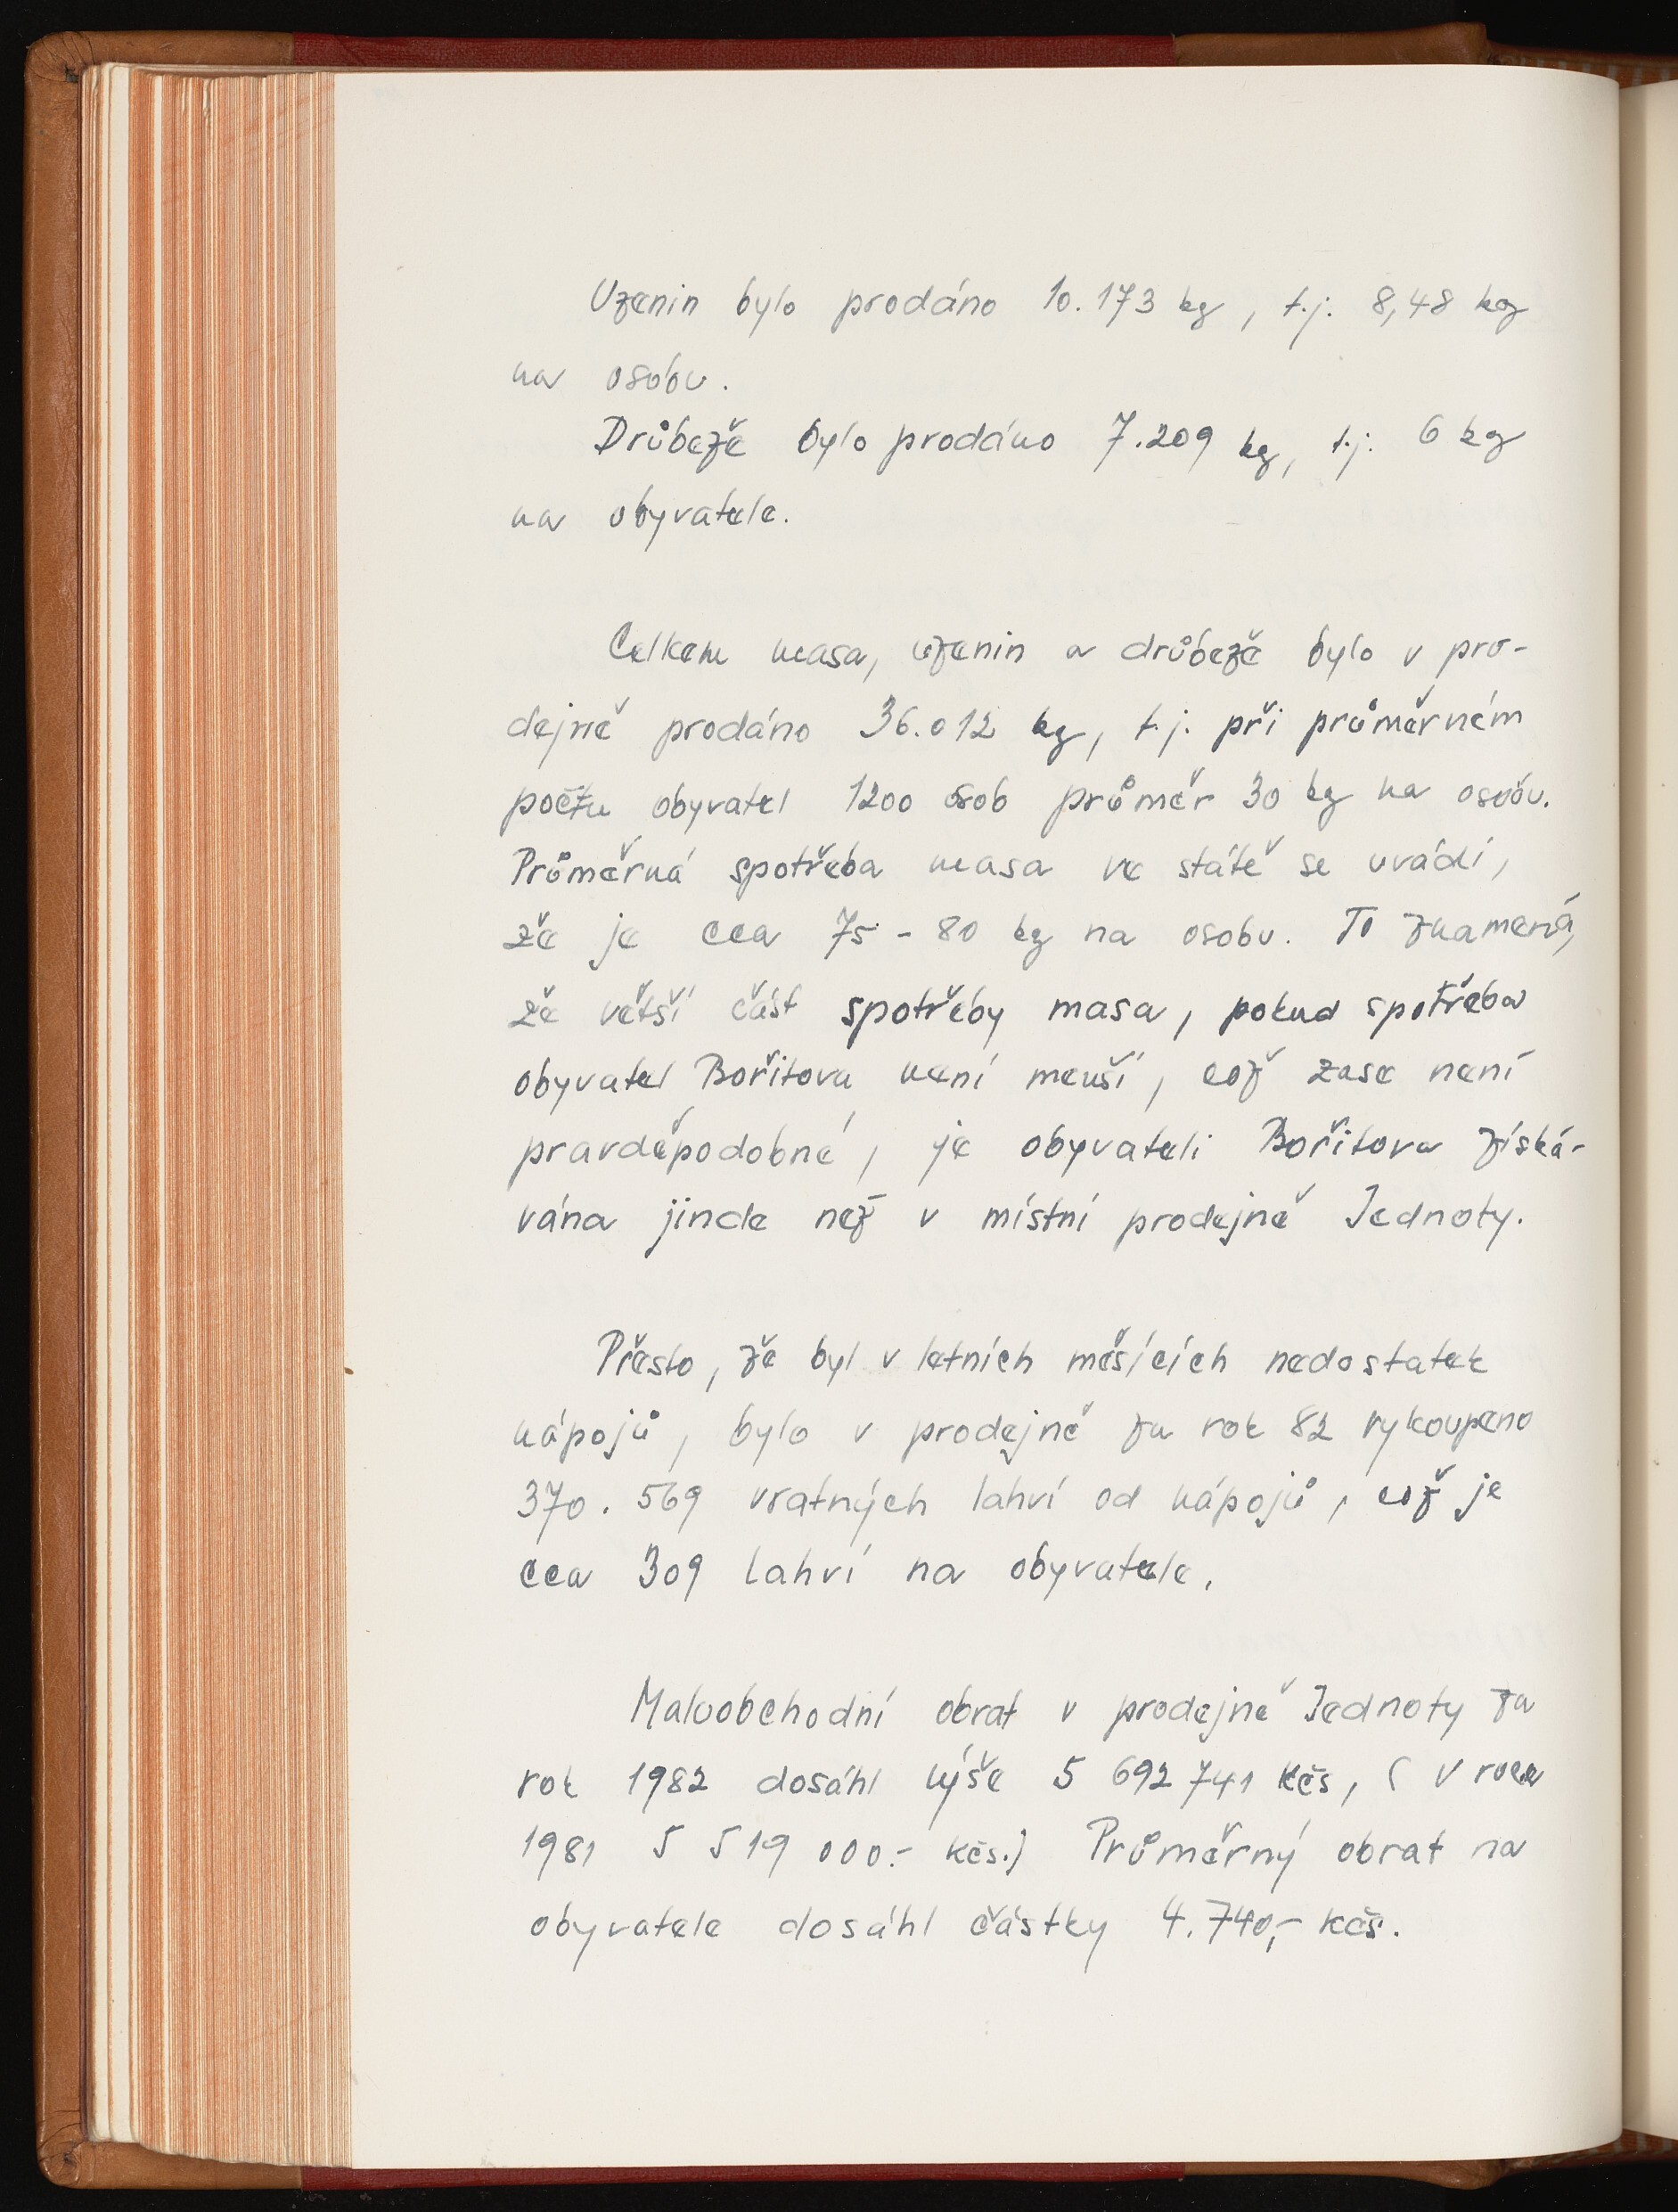 Uzenin bylo prodáno 10.173 kg, t.j. 8,48 kg
na osobu.
Drůbeže bylo prodáno 7.209 kg, t.j. 6 kg
na obyvatele.
Celkem masa, uzenin a drůbeže bylo v pro-
dejně prodáno 36.012 kg, t.j. při průměrném
počtu obyvatel 1200 osob průměr 30 kg na osobu.
Průměrná spotřeba masa ve státě se uvádí,
že je cca 75 - 80 kg na osobu. To znamená,
že větší část spotřeby masa, pokud spotřeba
obyvatel Bořitova není menší, což zase není
pravděpodobné, je obyvateli Bořitova získá-
vána jinde než v místní prodejně Jednoty.
Přesto, že byl v letních měsících nedostatek
nápojů, bylo v prodejně za rok 82 vykoupeno
370.569 vratných lahví od nápojů, což je
cca 309 lahví na obyvatele.
Maloobchodní obrat v prodejně Jednoty za
rok 1982 dosáhl výše 5 692 741 Kčs, ( V roce
1981 5 519 000.- Kčs.) Průměrný obrat na
obyvatele dosáhl částky 4.740,- Kčs.